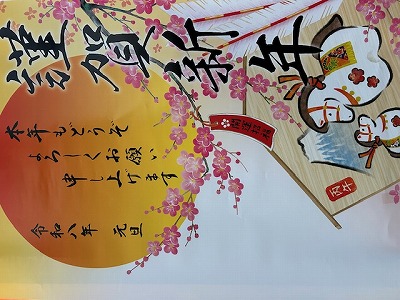 謹賀新年
本年もどうぞ
よろしくお願い
申し上げます
令和八年 元旦
開運招福
丙午